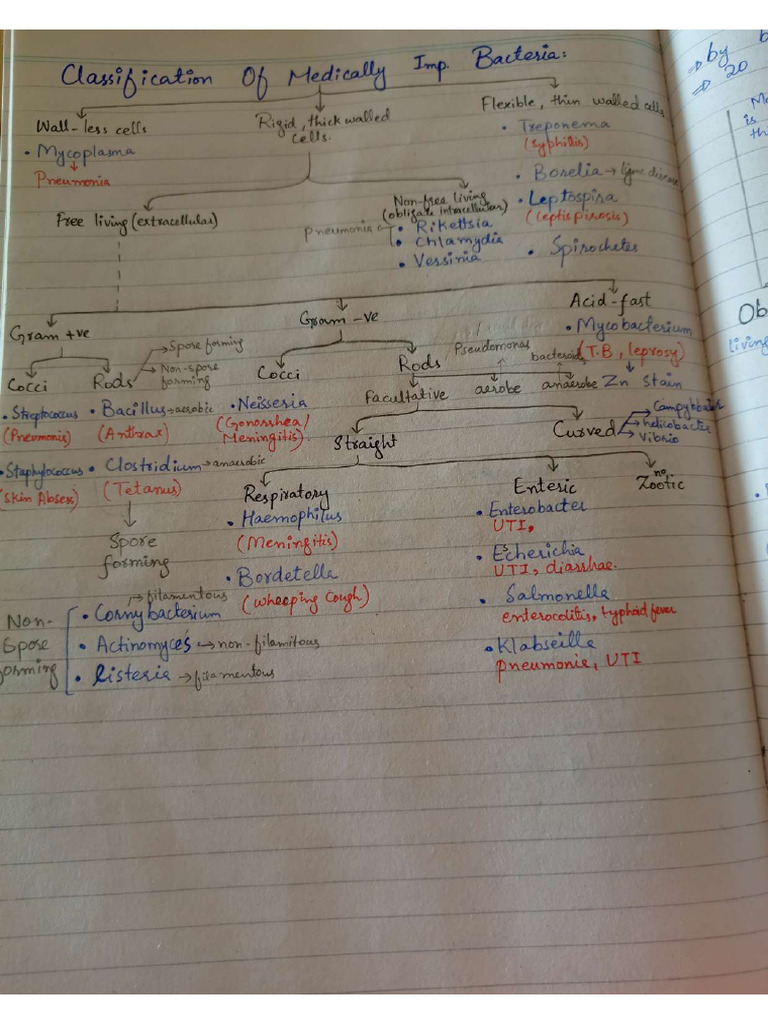 Classification Of Medically Imp. Bacteria:
Wall-less cells
• Mycoplasma
Pneumonia
Rigid, thick walled
cells.
Flexible, thin walled cells
• Treponema
(Syphillis)
• Borelia → lyme disease
• Leptospira
(leptispirosis)
• Spirochetes
Free living (extracellular)
Non-free living
(obligate intracellular)
pneumonia
• Rikettsia
• Chlamydia
• Verssinia
Gram +ve
Gram -ve
Acid-fast
• Mycobacterium
(T.B, leprosy)
Zn Stain
Cocci
Rods
→ Spore forming
→ Non-spore
forming
• Streptococcus
(Pneumonia)
• Staphylococcus
(Skin Absess)
• Bacillus → aerobic
(Anthrax)
• Clostridium → anaerobic
(Tetanus)
Spore
forming
Cocci
• Neisseria
(Gonorrhea/
Meningitis)
Rods
Pseudomonas
bacteroids
Facultative
aerobe
anaerobe
Straight
Curved
Campylobacter
helicobacter
Vibrio
Respiratory
• Haemophilus
(Meningitis)
• Bordetella
(Wheeping Cough)
Enteric
• Enterobacter
UTI,
• Escherichia
UTI, diarrhae.
• Salmonella
enterocolitis, typhoid fever
• Klabseilla
pneumonie, UTI
no,
Zootic
Non-
Spore
forming
→ filamentous
• Cornybacterium
• Actinomyces → non-filamitous
• listeria → filamentous
⇒ by
⇒ 20
is
th
Ob
living